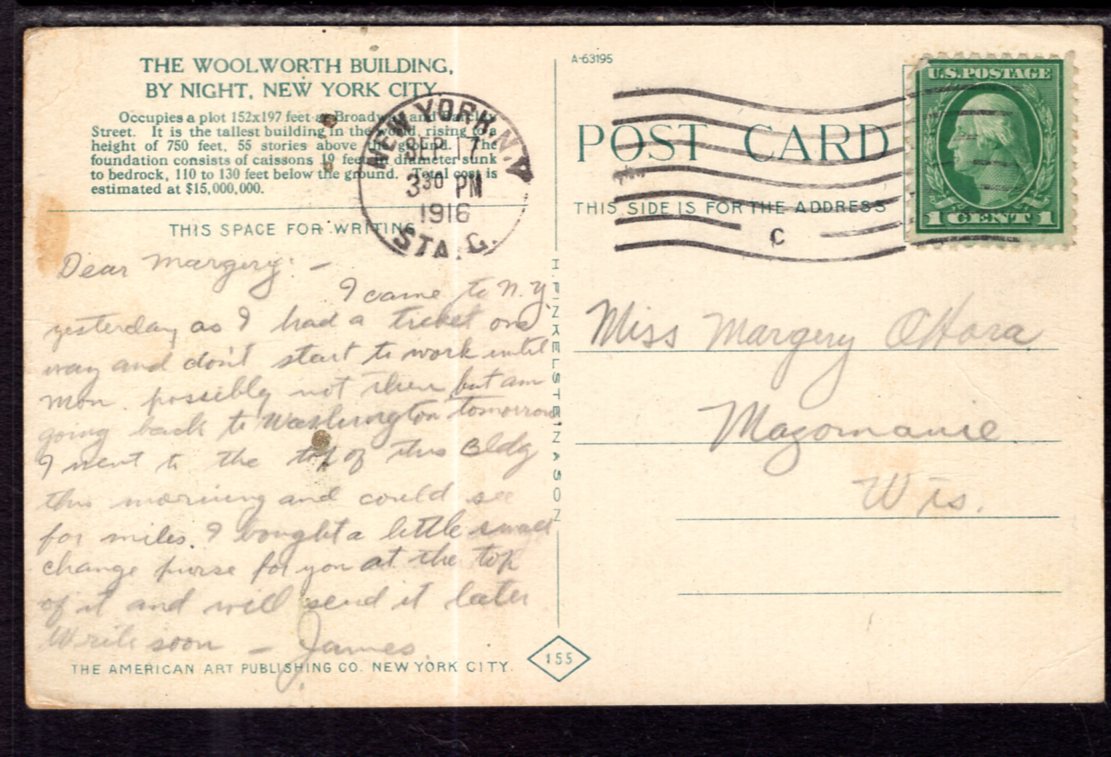 THE WOOLWORTH BUILDING,
BY NIGHT, NEW YORK CITY.
Occupies a plot 152x197 feet at Broadway and Barclay
Street. It is the tallest building in the world, rising to a
height of 750 feet, 55 stories above the ground. The
foundation consists of caissons 19 feet in diameter sunk
to bedrock, 110 to 130 feet below the ground. Total cost is
estimated at $15,000,000.
THIS SPACE FOR WRITING
Dear Margery: -
I came to N.Y.
yesterday as I had a ticket one
way and don't start to work until
Mon. possibly not then but am
going back to Washington tomorrow
I went to the top of this Bldg
this morning and could see
for miles. I bought a little small
change purse for you at the top
of it and will send it later
Write soon - James.
THE AMERICAN ART PUBLISHING CO. NEW YORK CITY.
NEW YORK, N.Y.
SEP 17
3 30 PM
1916
STA. G.
H. FINKELSTEIN & SON
155
A-63195
POST CARD
THIS SIDE IS FOR THE ADDRESS
C
U.S. POSTAGE
1 CENT 1
Miss Margery O'Hara
Mazomanie
Wis.